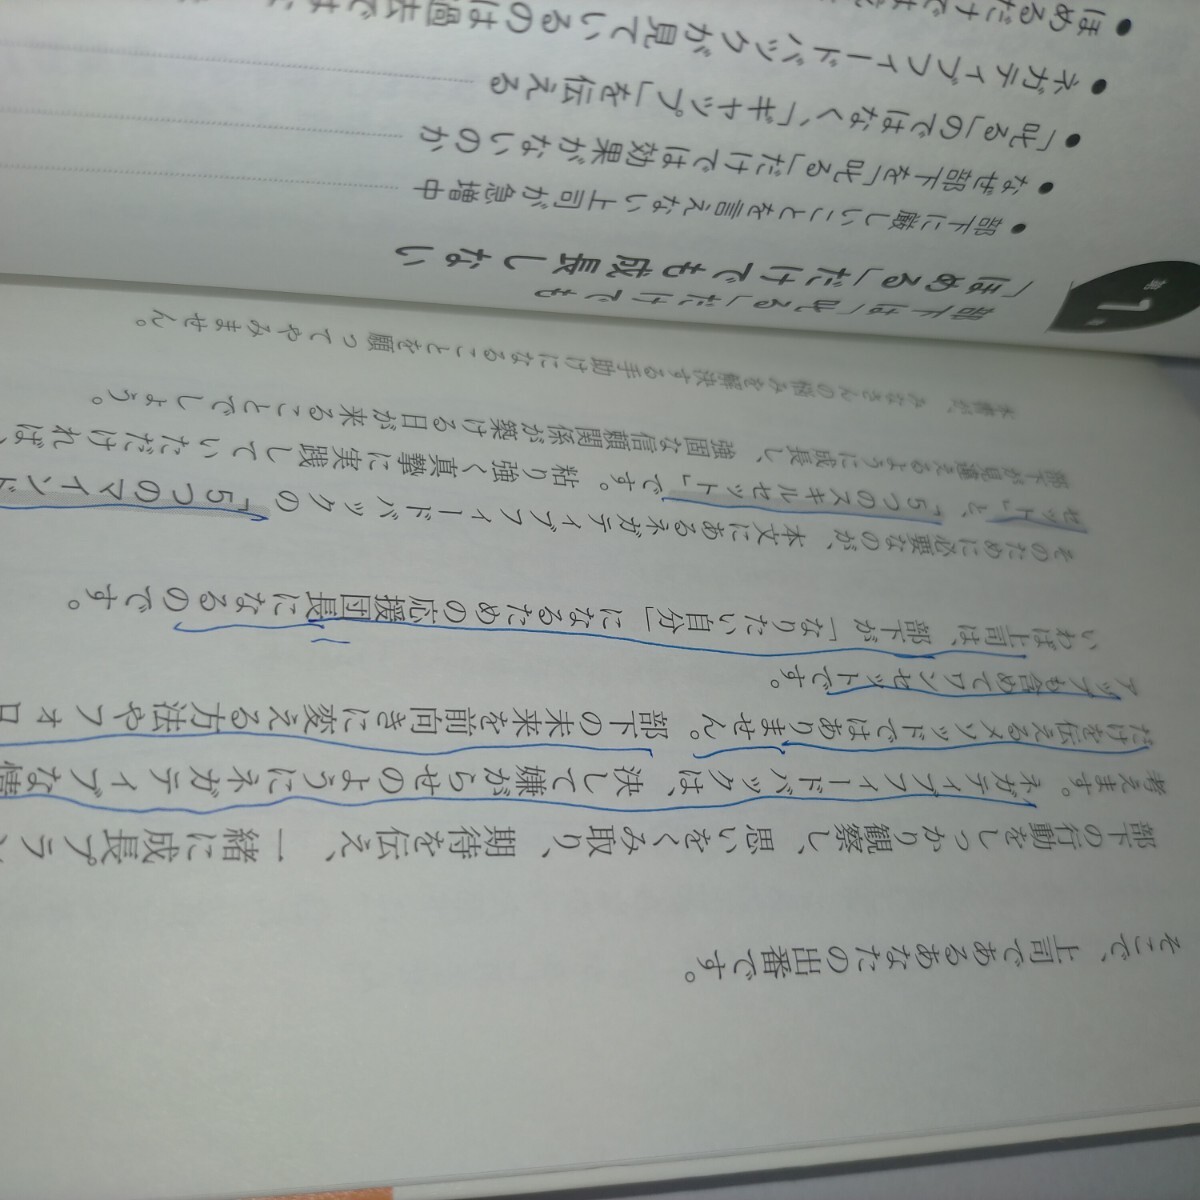 そこで、上司であるあなたの出番です。
部下の行動をしっかり観察し、思いをくみ取り、期待を伝え、一緒に成長プラン
考えます。ネガティブフィードバックは、決して嫌がらせのようにネガティブな情
だけを伝えるメソッドではありません。部下の未来を前向きに変える方法やフォロ
アップも含めてワンセットです。
いわば上司は、部下が「なりたい自分」になるための応援団長になるのです。
そのために必要なのが、本文にあるネガティブフィードバックの「5つのマインド
セット」と、「5つのスキルセット」です。粘り強く真摯に実践していただければ、
部下が見違えるように成長し、強固な信頼関係が築ける日が来ることでしょう。
本書が、みなさんの悩みを解決する手助けになることを願ってやみません。
第1章
部下は「叱る」だけでも
「ほめる」だけでも成長しない
●部下に厳しいことを言えない上司が急増中
●なぜ部下を「叱る」だけでは効果がないのか
●「叱る」のではなく、「ギャップ」を伝える
●ネガティブフィードバックが見ているのは過去では
●ほめるだけで